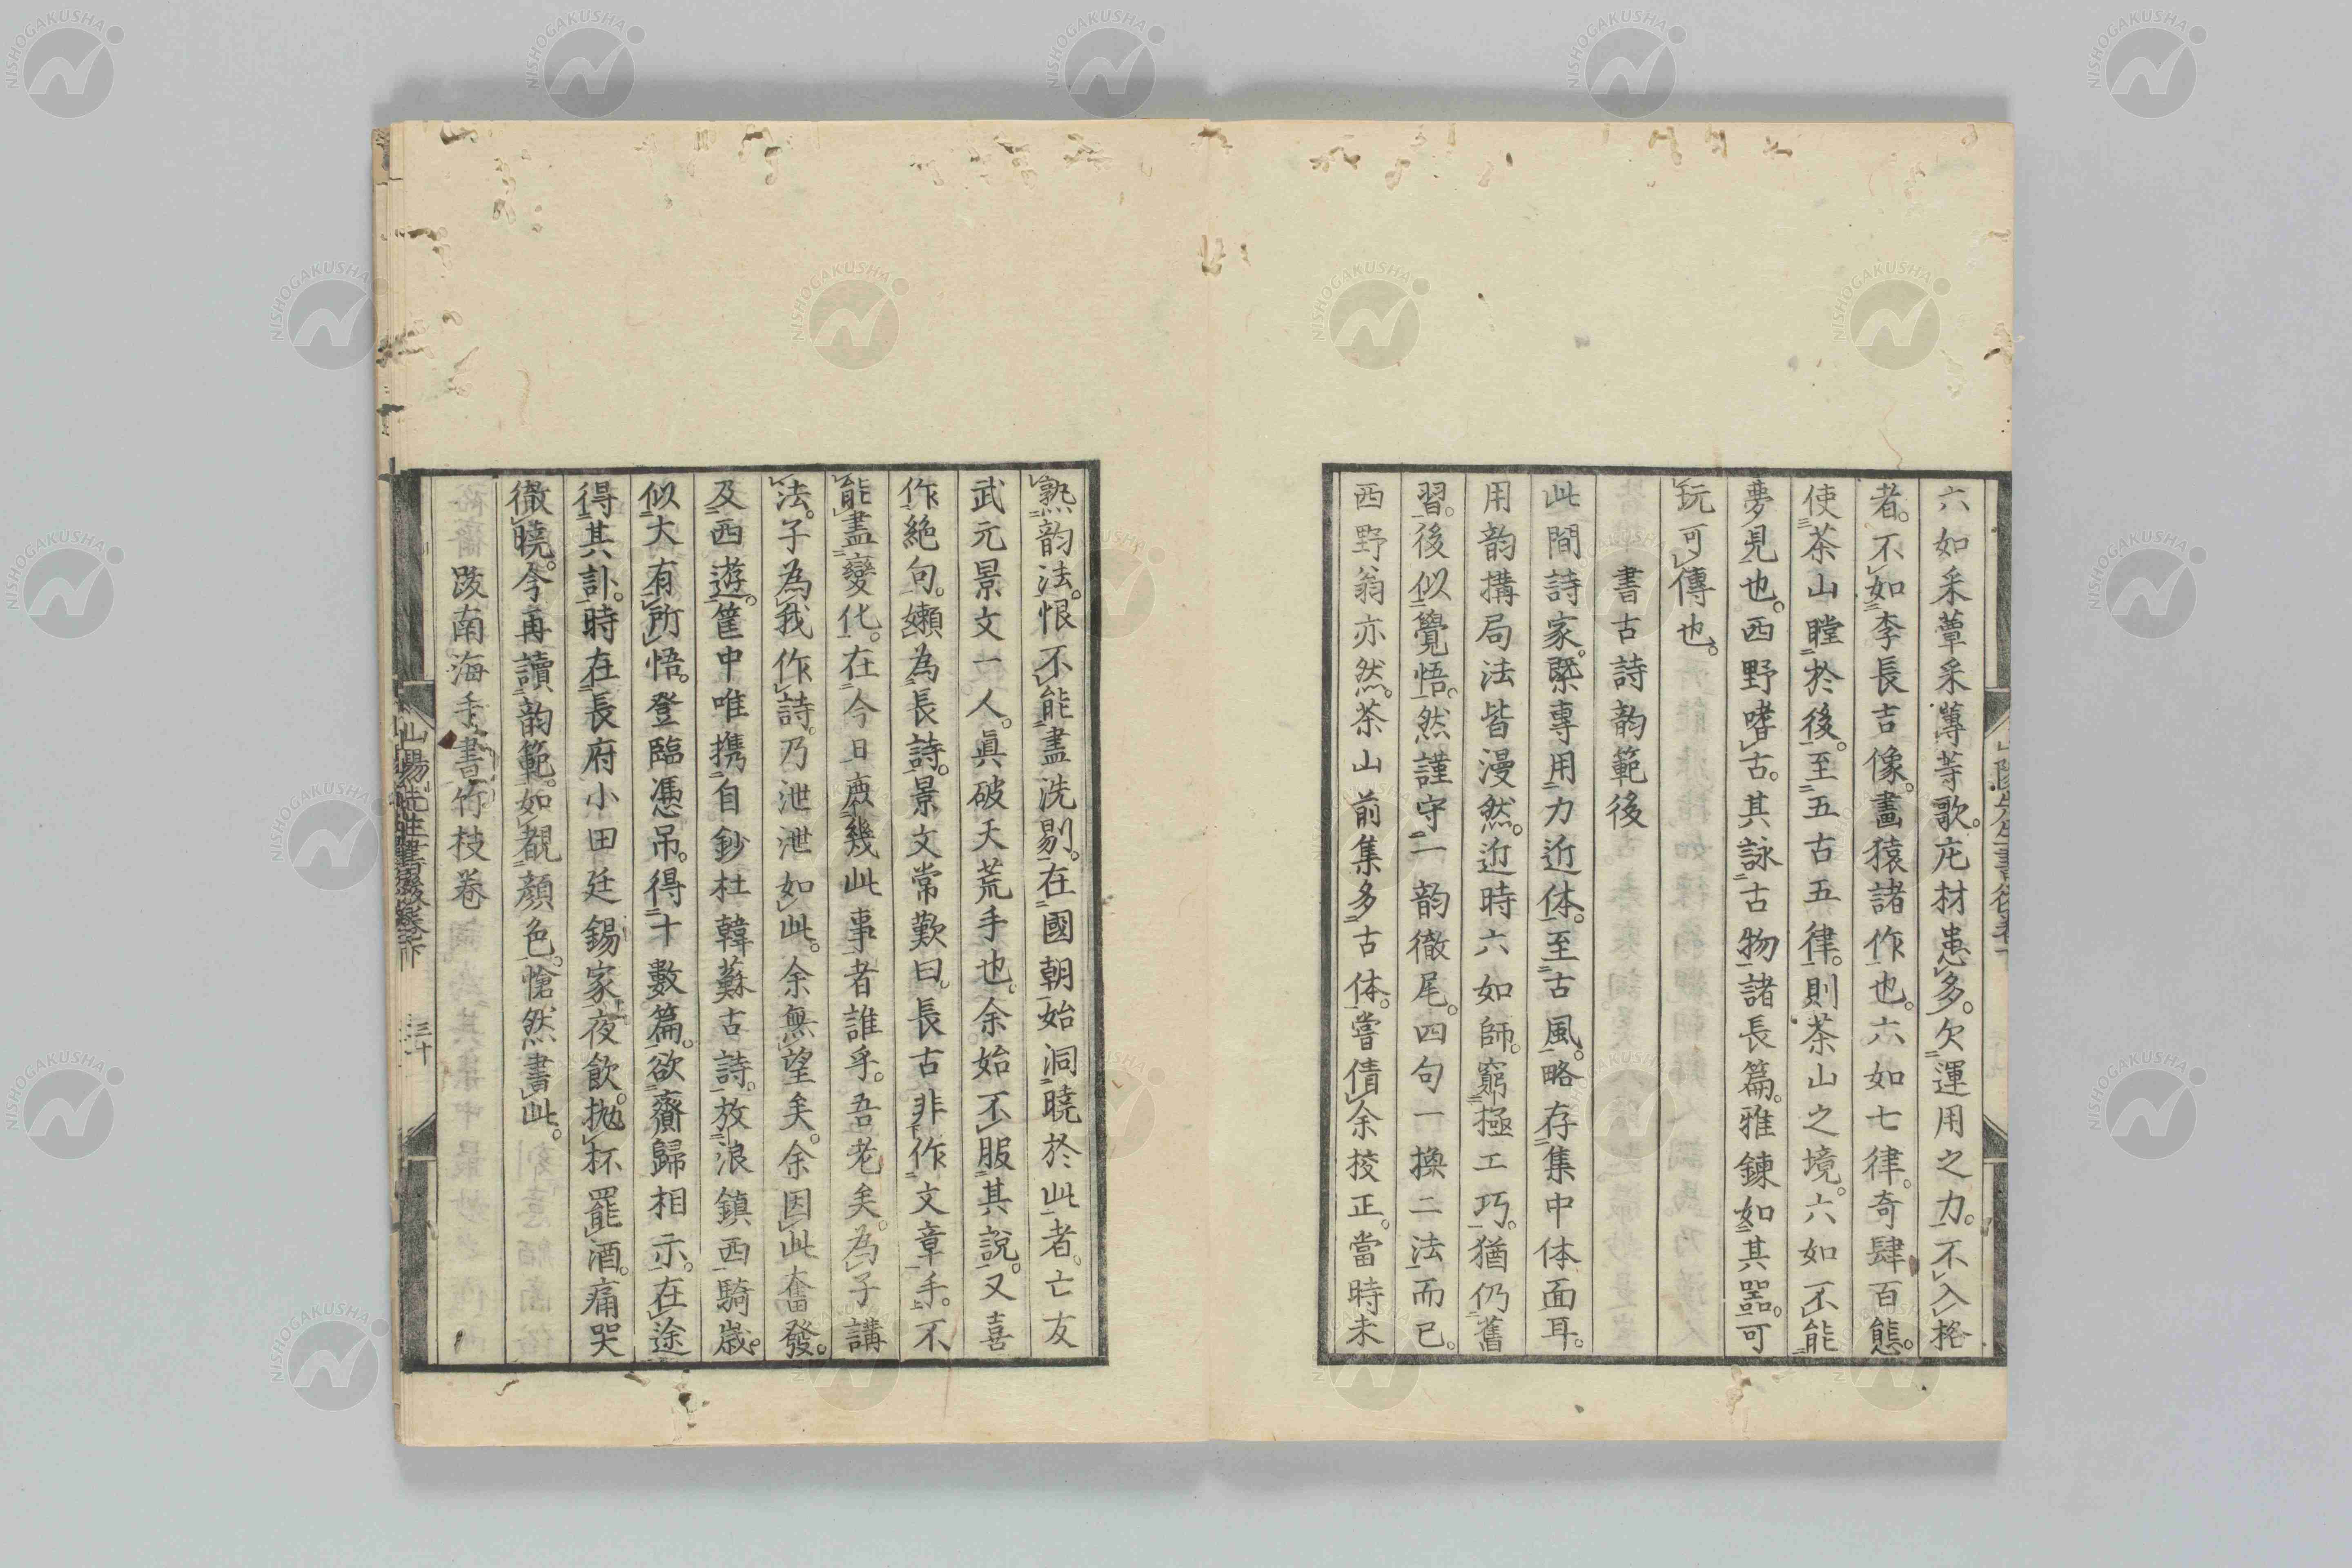 六如采蕈采蓴等歌。庀材患多。欠運用之力。不入格
者。不如李長吉像。畫猿諸作也。六如七律。奇肆百態。
使茶山瞠於後。至五古五律。則茶山之境。六如不能
夢見也。西野嗜古。其詠古物諸長篇。雅鍊如其器。可
玩可傳也。
書古詩韵範後
此間詩家。槩專用力近体。至古風。略存集中体面耳。
用韵搆局法皆漫然。近時六如師。窮極工巧。猶仍舊
習。後似覺悟。然謹守一韵徹尾。四句一換二法而已。
西野翁亦然。茶山前集多古体。嘗倩余挍正。當時未
熟韵法。恨不能盡洗剔。在國朝始洞曉於此者。亡友
武元景文一人。眞破天荒手也。余始不服其説。又喜
作絶句。嬾為長詩。景文常歎曰。長古非作文章手。不
能盡變化。在今日庶幾此事者誰乎。吾老矣。為子講
法。子為我作詩。乃泄泄如此。余無望矣。余因此奮發。
及西遊。篋中唯携自鈔杜韓蘇古詩。放浪鎮西騎歳。
似大有所悟。登臨憑吊。得十數篇。欲齎歸相示。在途
得其訃。時在長府小田廷錫家夜飲。抛杯罷酒。痛哭
徹曉。今再讀韵範。如覩顔色。愴然書此。
跋南海手書竹枝卷
山陽先生書後卷下
三十
NISHOGAKUSHA